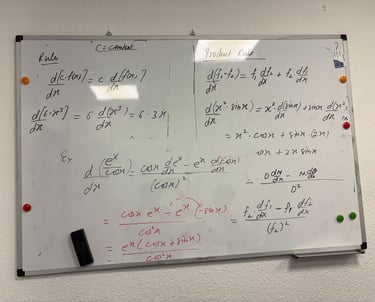 c = constant
Rules
d[c·f(x)]/dx = c d[f(x)]/dx
d[6·x³]/dx = 6 d(x³)/dx = 6·3x
Product Rule
d(f₁·f₂)/dx = f₁ df₂/dx + f₂ df₁/dx
d(x²·sinx)/dx = x² d(sinx)/dx + sinx d(x²)/dx
= x²·cosx + sinx (2x)
cosx + 2x sinx
Ex
d/dx (eˣ/cosx) = cosx deˣ/dx − eˣ dcosx/dx / (cosx)²
= cosx eˣ − eˣ (−sinx) / cos²x
= eˣ (cosx + sinx) / cos²x
= D dN/dx − N dD/dx / D²
= f₂ df₁/dx − f₁ df₂/dx / (f₂)²